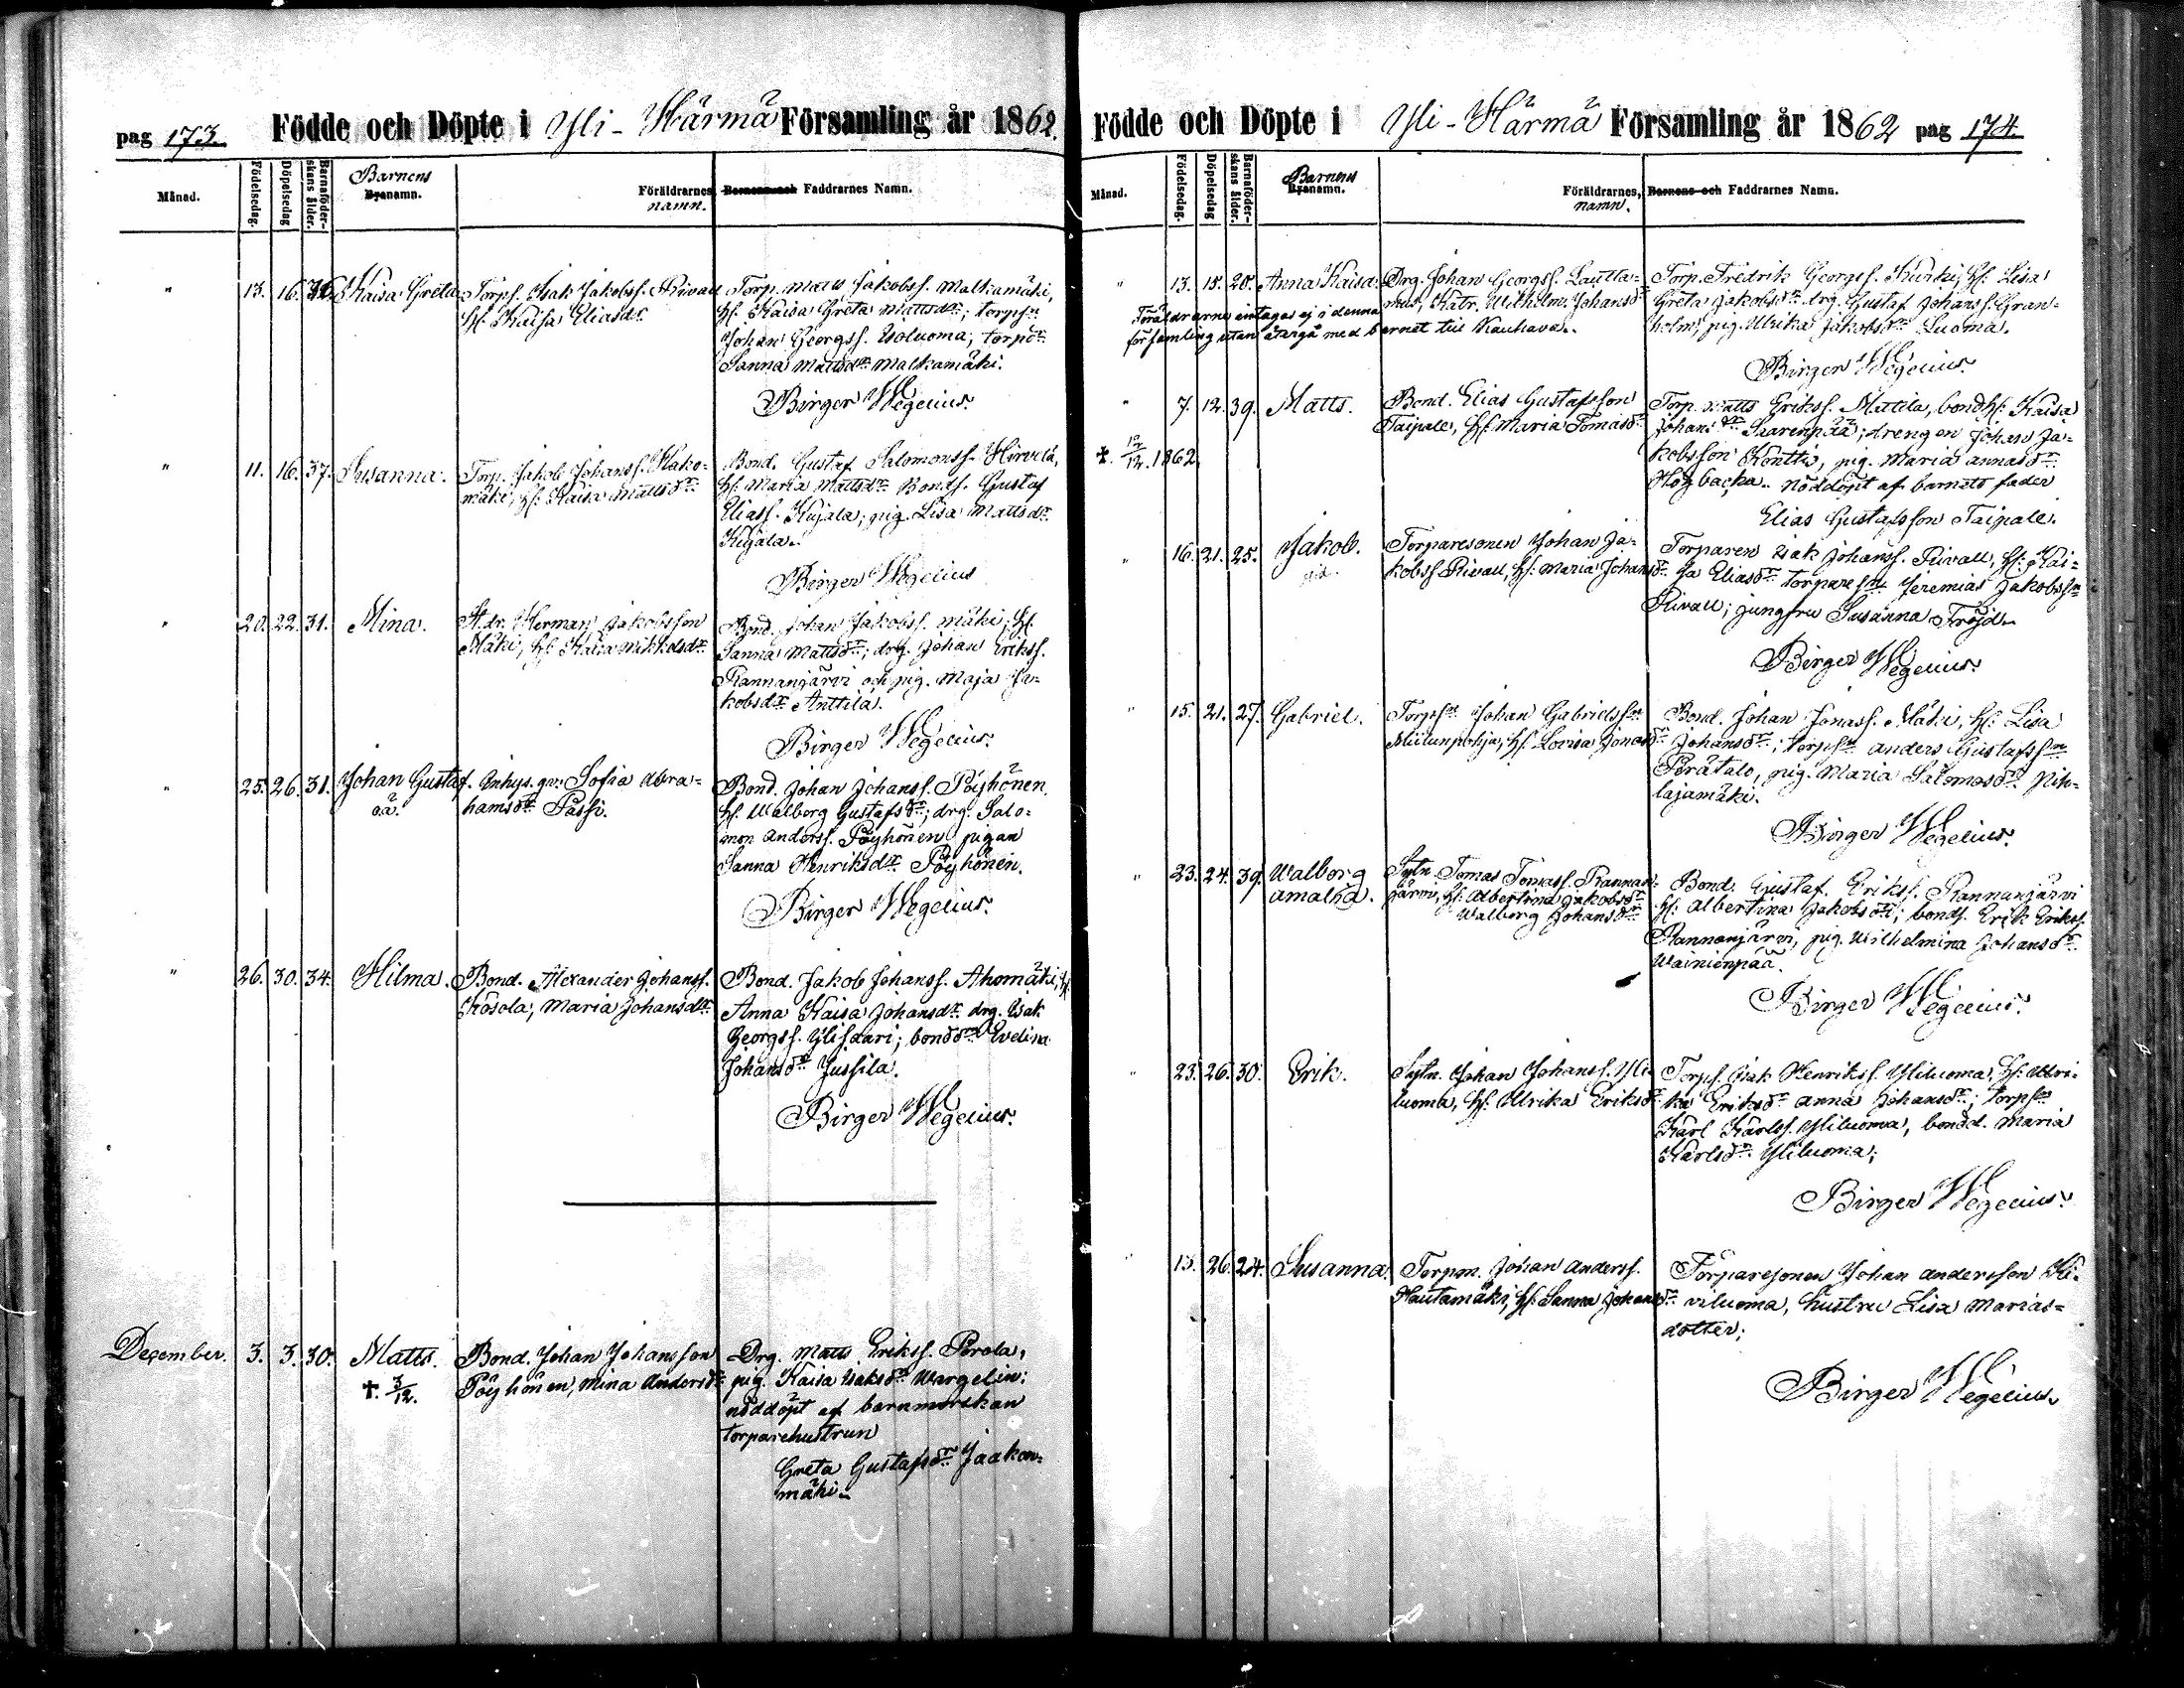 pag 173. Födde och Döpte i Yli-Härmä Församling år 1862.
Månad. Födelsedag. Döpelsedag Barnaföderskans ålder. Barnens Byanamn. Föräldrarnes namn. Barnens och Faddrarnes Namn.
" 13. 16. 36 Kaisa Greta Torps. Isak Jakobss. Rivall
hs. Kaisa Eliasdr.
Torp. Matts Jakobss. Malkamäki,
hs. Kaisa Greta Mattsdr; torpsn
Johan Georgss. Isoluoma; torpdr
Sanna Mattsdr Malkamäki.
Birger Wegelius.
" 11. 16. 37. Susanna. Torp. Jakob Johanss. Hako-
mäki, hs. Kaisa Mattsdr
Bond. Gustaf Salomonss. Hirvelä,
hs. Maria Mattsdr Bonds. Gustaf
Eliass. Kujala; pig. Lisa Mattsdr.
Kujala.
Birger Wegelius
" 20. 22. 31. Mina. Herman Jakobsson
Mäki, hs. Kaisa Mikkelsdr
Bond. Johan Jakobss. Mäki; hs.
Sanna Mattsdr; drg. Johan Erikss.
Rannanjärvi och pig. Maja Ja-
kobsdr Anttila.
Birger Wegelius.
" 25. 26. 31. Johan Gustaf. Inhys. qv. Sofia Abra-
oä. hamsdr Passi.
Bond. Johan Johanss. Pöyhönen,
hs. Walborg Gustafsdr; drg. Salo-
mon Anderss. Pöyhönen, pigan
Sanna Henriksdr. Pöyhönen.
Birger Wegelius.
" 26. 30. 34. Hilma. Bond. Alexander Johanss.
Kosola, Maria Johansdr.
Bond. Jakob Johanss. Ahomäki, hs.
Anna Kaisa Johansdr. drg. Isak
Georgss. Ylisaari; bonddr Evelina
Johansdr Jussila.
Birger Wegelius.
December. 3. 3. 30. Matts. Bond. Johan Johansson
† 3/12. Pöyhönen, Mina Andersdr
Drg. Matts Erikss. Perola,
pig. Kaisa Isaksdr Wargelin;
nöddöpt af barnmorskan
torparehustrun
Greta Gustafsdr Jaakon-
mäki.
Födde och Döpte i Yli-Härmä Församling år 1862 pag 174.
Månad. Födelsedag. Döpelsedag Barnaföderskans ålder. Barnens Byanamn. Föräldrarnes, namn. Barnens och Faddrarnes Namn.
" 13. 15. 20. Anna Kaisa. Drg. Johan Georgss. Lautta-
Katr. Wilhelm. Johansdr
Föräldrarne intagas ej i denna
församling utan återgå med barnet till Kauhava.
Torp. Fredrik Georgss. Kurki, hs. Lisa
Greta Jakobsdr. drg. Gustaf Johanss. Gran-
holm, pig. Ulrika Jakobsdr Luoma.
Birger Wegelius.
" 7. 12. 39. Matts. Bond. Elias Gustafsson
Taipale, hs. Maria Tomasdr
† 12/12. 1862
Torp. Matts Erikss. Mattila, bondhs. Kaisa
Johansdr Saarenpää; drengen Johan Ja-
kobsson Kontti, pig. Maria Annasdr
Högbacka. nöddöpt af barnets fader
Elias Gustafsson Taipale.
" 16. 21. 25. Jakob. Torparesonen Johan Ja-
kobss. Rivall, hs. Maria Johansdr
Torparen Isak Johanss. Rivall, hs. Kai-
sa Eliasdr torparesn Jeremias Jakobssn
Rivall; jungfru Susanna Fröjd.
Birger Wegelius.
" 15. 21. 27. Gabriel. Torpsn Johan Gabrielssn
Miilunpohja, hs. Lovisa Jonasdr
Bond. Johan Jonass. Mäki, hs. Lisa
Johansdr; torpsn Anders Gustafssn
Perätalo, pig. Maria Salomosdr. Pih-
lajamäki.
Birger Wegelius.
" 23. 24. 39. Walborg
Amalia.
Sytn. Tomas Tomass. Rannan-
järvi, hs. Albertina Jakobsdr
Walborg Johansdr
Bond. Gustaf Erikss. Rannanjärvi
hs. Albertina Jakobsdr; bonds. Erik Erikss.
Rannanjärvi, pig. Wilhelmina Johansdr
Wainionpää.
Birger Wegelius.
" 23. 26. 30. Erik. Sytn. Johan Johanss. Yli-
luoma, hs. Ulrika Eriksdr
Torps. Isak Henrikss. Yliluoma, hs. Ulri-
ka Eriksdr Anna Johansdr; torpsn
Karl Karlss. Yliluoma, bondd. Maria
Karlsdr Yliluoma;
Birger Wegelius.
" 13. 26. 24. Susanna. Torpm. Johan Anderss.
Hautamäki, hs. Sanna Johansdr
Torparesonen Johan Andersson Ki-
viluoma, hustru Lisa Marias-
dotter;
Birger Wegelius.